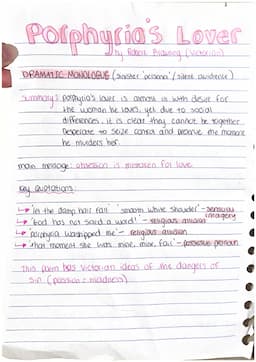 Porphyria's Lover
by Robert Browning (Victorian)
DRAMATIC MONOLOGUE (sinister 'persona' / silent audience)
Summary: porphyria's lover is almost in with desire for
the woman he loves, yet due to social
differences, it is clear they cannot be together.
Desperate to seize control and preserve the moment
he murders her.
main message: obsession is mistaken for love
Key Quotations:
'let the damp hair fall' 'smooth white shoulder' - sensual
imagery
'God has not said a word' - religious allusion
'porphyria worshipped me' - religious allusion
'that moment she was mine, mine, fair' - possessive pronoun
This poem has Victorian ideas of the dangers of
sin (passion = madness)